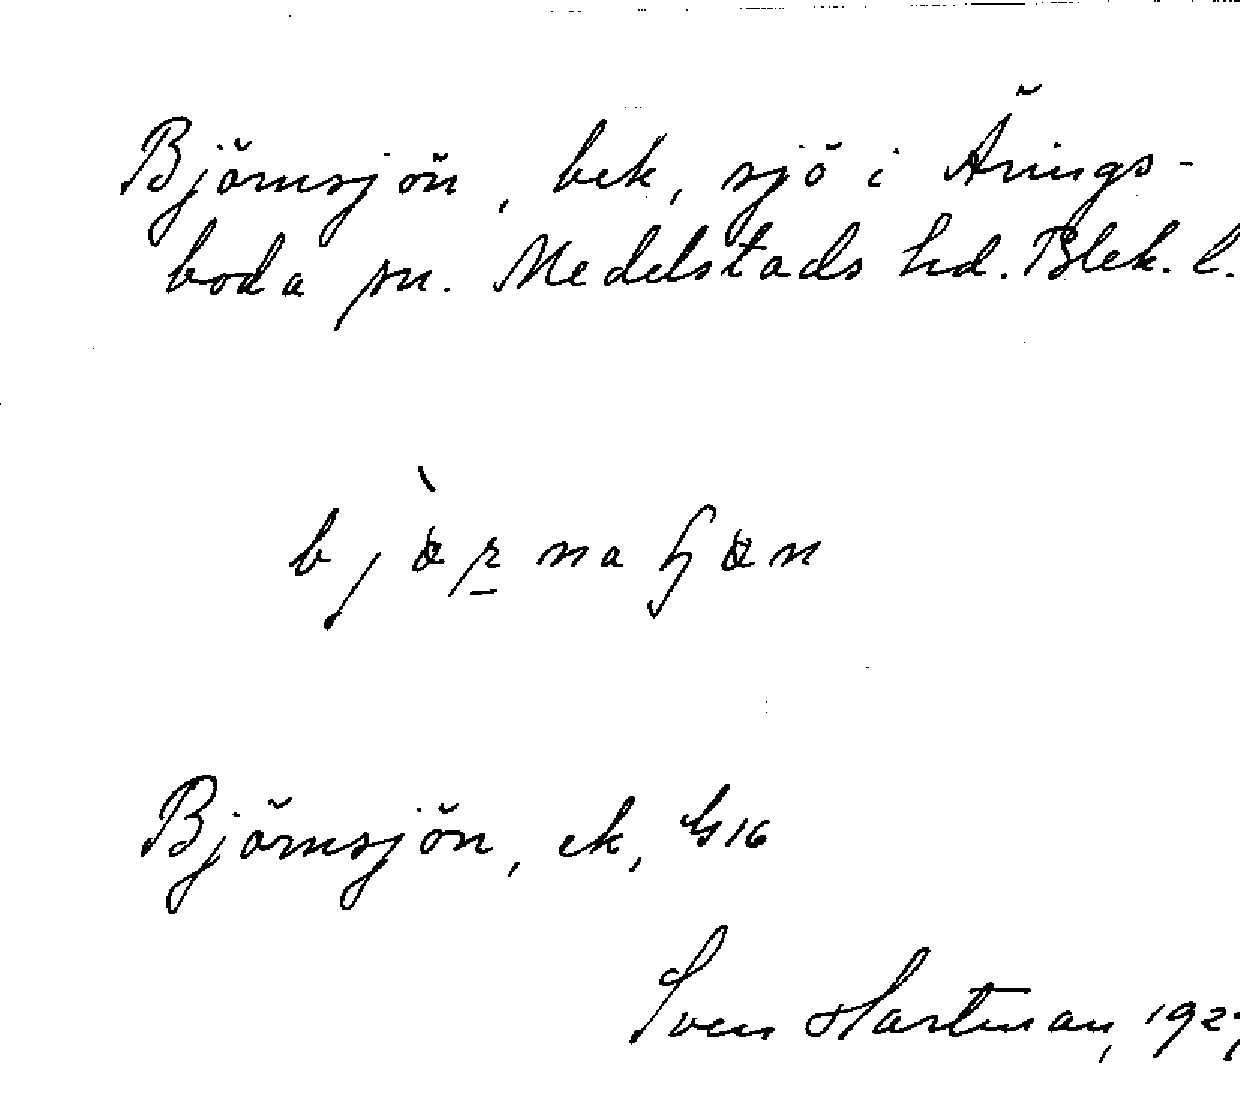 Björnsjön, bek, sjö i Årings-
boda sn. Medelstads hd. Blek. l.
Björnsjön, ek, G16
Sven Hartman, 1927